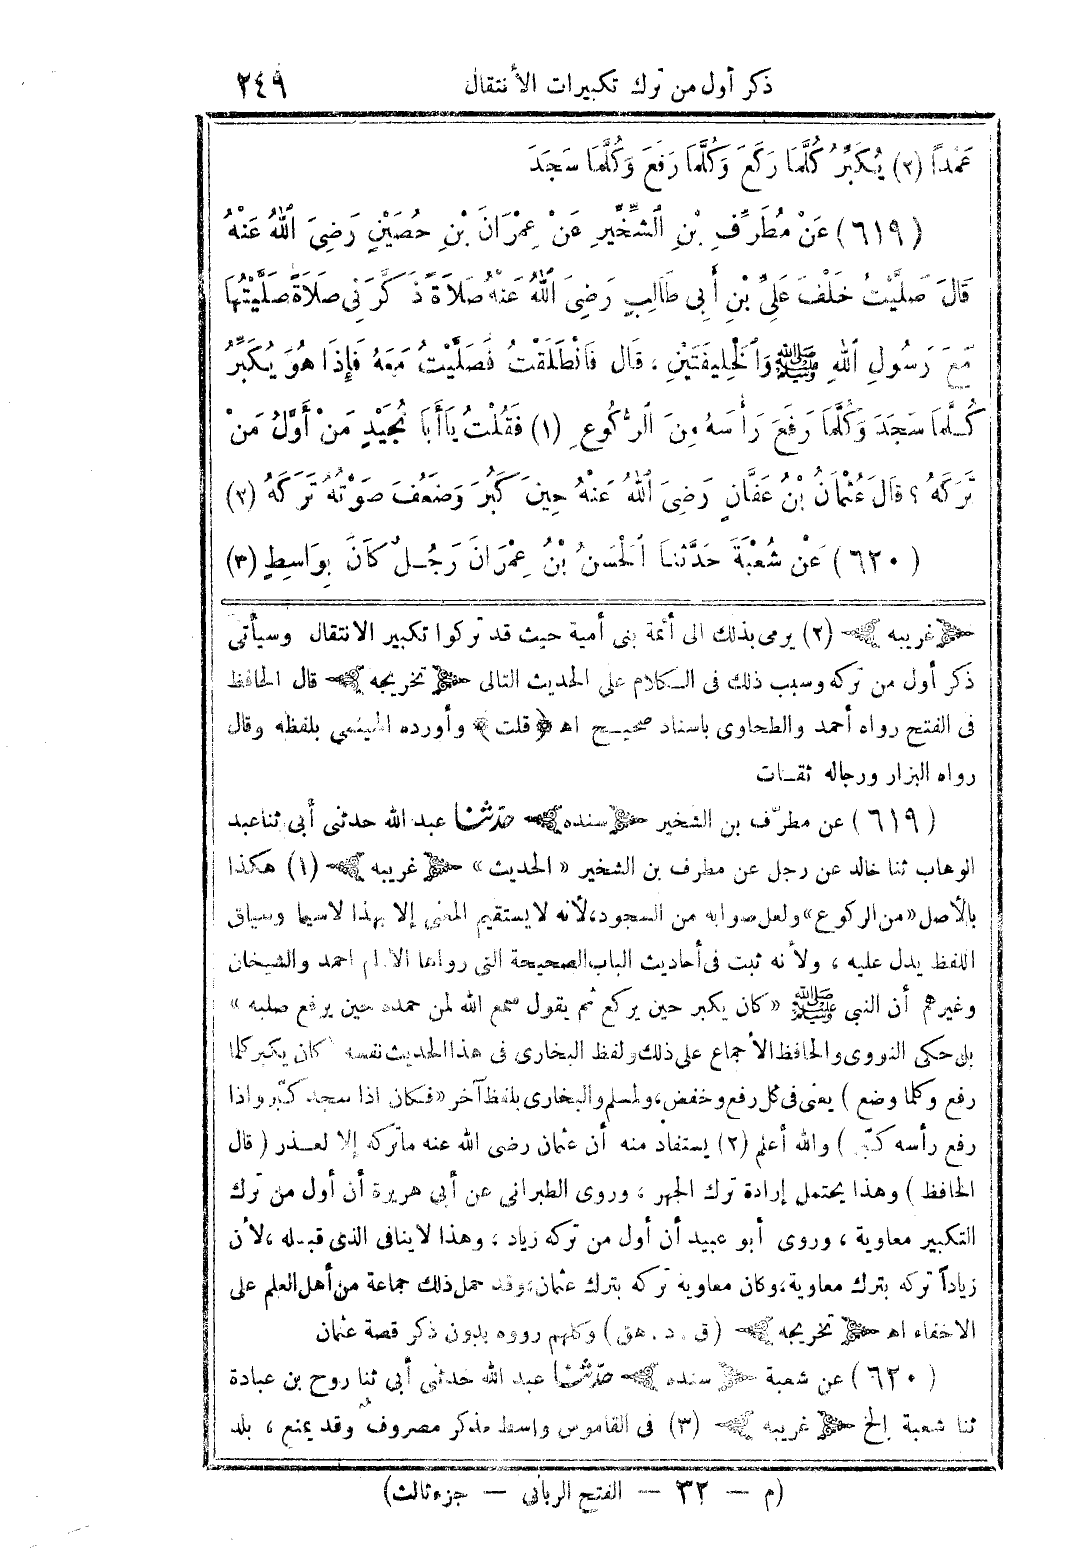 ذكر أول من ترك تكبيرات الأنتقال ٢٤٩
عَمْداً (٢) يُكَبِّرُ كُلَّمَا رَكَعَ وَكُلَّمَا رَفَعَ وَكُلَّمَا سَجَدَ
(٦١٩) عَنْ مُطَرِّفِ بْنِ الشِّخِّيرِ عَنْ عِمْرَانَ بْنِ حُصَيْنٍ رَضِىَ اللهُ عَنْهُ
قَالَ صَلَّيْتُ خَلْفَ عَلِىِّ بْنِ أَبِى طَالِبٍ رَضِىَ اللهُ عَنْهُ صَلَاةً ذَكَّرَنِى صَلَاةً صَلَّيْتُهَا
مَعَ رَسُولِ اللهِ ﷺ وَالْخَلِيفَتَيْنِ ، قَالَ فَانْطَلَقْتُ فَصَلَّيْتُ مَعَهُ فَإِذَا هُوَ يُكَبِّرُ
كُلَّمَا سَجَدَ وَكُلَّمَا رَفَعَ رَأْسَهُ مِنَ الرُّكُوعِ (١) فَقُلْتُ يَاأَبَا نُجَيْدٍ مَنْ أَوَّلُ مَنْ
تَرَكَهُ ؟ قَالَ عُثْمَانُ بْنُ عَفَّانٍ رَضِىَ اللهُ عَنْهُ حِينَ كَبُرَ وَضَعُفَ صَوْتُهُ تَرَكَهُ (٢)
(٦٢٠) عَنْ شُعْبَةَ حَدَّثَنَا الْحَسَنُ بْنُ عِمْرَانَ رَجُلٌ كَانَ بِوَاسِطٍ (٣)
﴿غريبه﴾ (٢) يرمى بذلك الى أئمة بنى أمية حيث قد تركوا تكبير الانتقال وسيأتى
ذكر أول من تركه وسبب ذلك فى الكلام على الحديث التالى ﴿تخريجه﴾ قال الحافظ
فى الفتح رواه أحمد والطحاوى باسناد صحيح اه ﴿قلت﴾ وأورده الهيثمى بلفظه وقال
رواه البزار ورجاله ثقات
(٦١٩) عن مطرّف بن الشخير ﴿سنده﴾ حدّثنا عبد الله حدثنى أبى ثنا عبد
الوهاب ثنا خالد عن رجل عن مطرف بن الشخير «الحديث» ﴿غريبه﴾ (١) هكذا
بالأصل «من الركوع» ولعل صوابه من السجود، لأنه لا يستقيم المعنى إلا بهذا لاسيما وسياق
اللفظ يدل عليه ، ولأنه ثبت فى أحاديث الباب الصحيحة التى رواها الامام احمد والشيخان
وغيرهم أن النبى ﷺ «كان يكبر حين يركع ثم يقول سمع الله لمن حمده حين يرفع صلبه »
بل حكى النووى والحافظ الأجماع على ذلك ولفظ البخارى فى هذا الحديث نفسه (كان يكبر كلما
رفع وكلما وضع ) يعنى فى كل رفع وخفض، ولمسلم والبخارى بلفظ آخر «فكان اذا سجد كبّر واذا
رفع رأسه كبّر ) والله أعلم (٢) يستفاد منه أن عثمان رضى الله عنه ما تركه إلا لعذر ( قال
الحافظ ) وهذا يحتمل إرادة ترك الجهر ، وروى الطبراني عن أبي هريرة أن أول من ترك
التكبير معاوية ، وروى أبو عبيد أن أول من تركه زياد ، وهذا لاينافى الذى قبله ، لأن
زياداً تركه بترك معاوية، وكان معاوية تركه بترك عثمان، وقد حمل ذلك جماعة من أهل العلم على
الاخفاء اه ﴿تخريجه﴾ (ق . د . هق) وكلهم رووه بدون ذكر قصة عثمان
(٦٢٠) عن شعبة ﴿سنده﴾ حدّثنا عبد الله حدثنى أبي ثنا روح بن عبادة
ثنا شعبة إلخ ﴿غريبه﴾ (٣) فى القاموس واسط مذكر مصروف وقد يمنع ، بلد
(م — ٣٢ — الفتح الرباني — جزء ثالث)